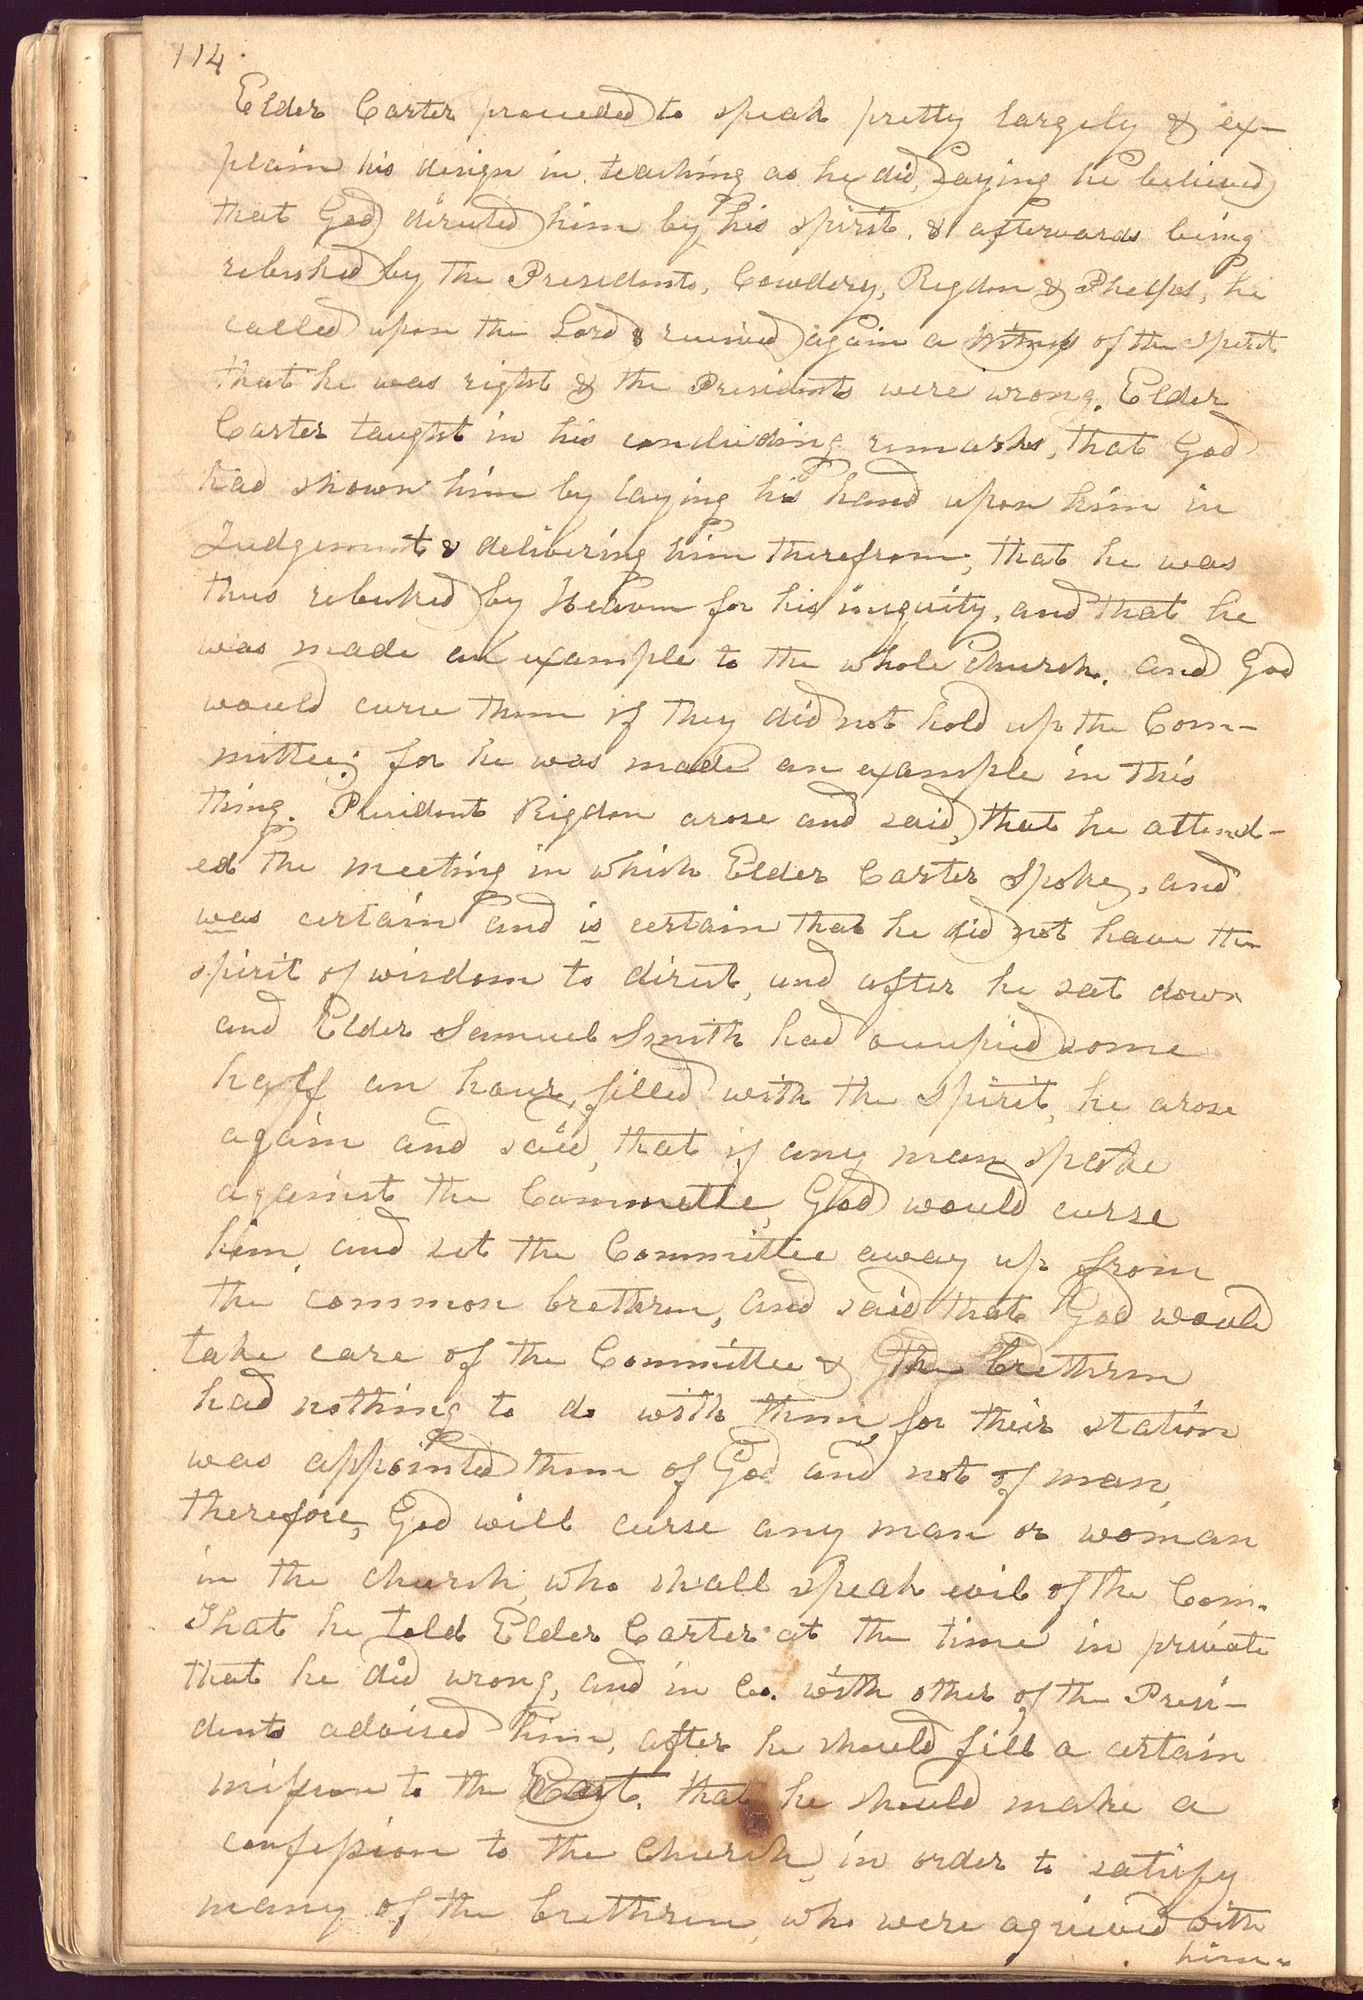 114
Elder Carter proceeded to speak pretty largely & ex-
plain his design in teaching as he did, saying he believed
that God directed him by his spirit. & afterwards being
rebuked by the Presidents, Cowdery, Rigdon & Phelps, he
called upon the Lord & received again a witness of the spirit
that he was right & the Presidents were wrong. Elder
Carter taught in his concluding remarks, that God
had shown him by laying his hand upon him in
Judgement & delivering him therefrom, that he was
thus rebuked by Heaven for his iniquity, and that he
was made an example to the whole church. and God
would curse them if they did not hold up the Com-
mittee; for he was made an example in this
thing. President Rigdon arose and said, that he attend-
ed the meeting in which Elder Carter spoke, and
was certain and is certain that he did not have the
spirit of wisdom to direct, and after he sat down
and Elder Samuel Smith had occupied some
half an hour, filled with the spirit, he arose
again and said, that if any man spoke
against the Committe, God would curse
him, and set the Committee away up from
the common brethren, and said that God would
take care of the Committee & the brethren
had nothing to do with them, for their station
was appointed them of God and not of man,
therefore, God will curse any man or woman
in the church, who shall speak evil of the Com.
That he told Elder Carter at the time in private
that he did wrong, and in Co. with other of the Presi-
dents advised him, after he should fill a certain
mission to the East, that he should make a
confession to the Church, in order to satisfy
many of the brethren, who were agrieved with
him.